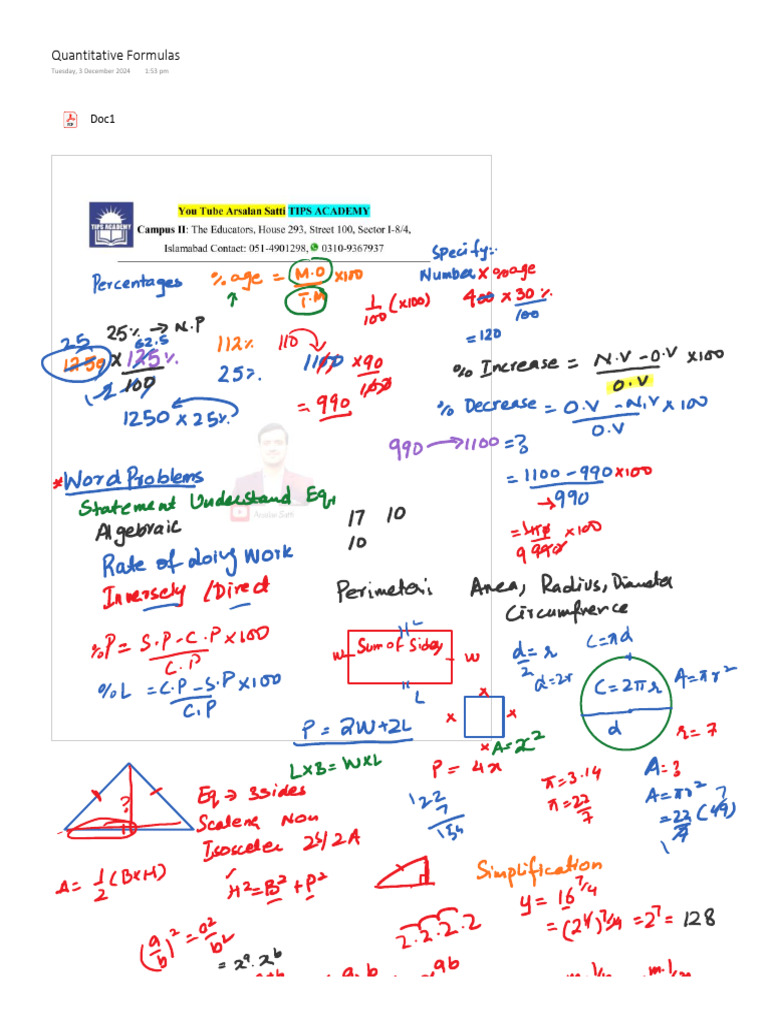 Quantitative Formulas
Tuesday, 3 December 2024 1:53 pm
Doc1
You Tube Arsalan Satti TIPS ACADEMY
TIPS ACADEMY
Campus II: The Educators, House 293, Street 100, Sector I-8/4,
Islamabad Contact: 051-4901298, 0310-9367937
Specify:
Percentages
% age = M.O / T.M × 100
Number × %age
1/100 (×100)
400 × 30% / 100
= 120
25% → N.P
25 62.5
1250 × 125% / 100
112%
25%
110
1100 × 90 / 100
= 990
1250 × 25%
% Increase = N.V - O.V / O.V × 100
% Decrease = O.V - N.V / O.V × 100
990 → 1100 = ?
= 1100 - 990 × 100
→ 990
* Word Problems
Statement Understand Eq
Algebraic
Arsalan Satti
17 10
10
× 100
Rate of doing Work
Inversely / Direct
Perimeter:
Area, Radius, Diameter
Circumfrence
%P = S.P - C.P / C.P × 100
%L = C.P - S.P / C.P × 100
L
w Sum of Sides w
L
d/2 = r
d = 2r
C = πd
C = 2πr
d
A = πr²
r = 7
P = 2W + 2L
L × B = W × L
x x x x
A = x²
P = 4x
π = 3.14
π = 22/7
A = ?
A = πr²
= 22/7 (49)
22
7
154
?
Eq → 3 sides
Scalene Non
Isosceles 2S/2A
A = 1/2 (B×H)
H² = B² + P²
Simplification
y = 16^7/4
= (2^4)^7/4 = 2^7 = 128
2.2.2.2
(a/b)² = a²/b²
= x^a . x^b